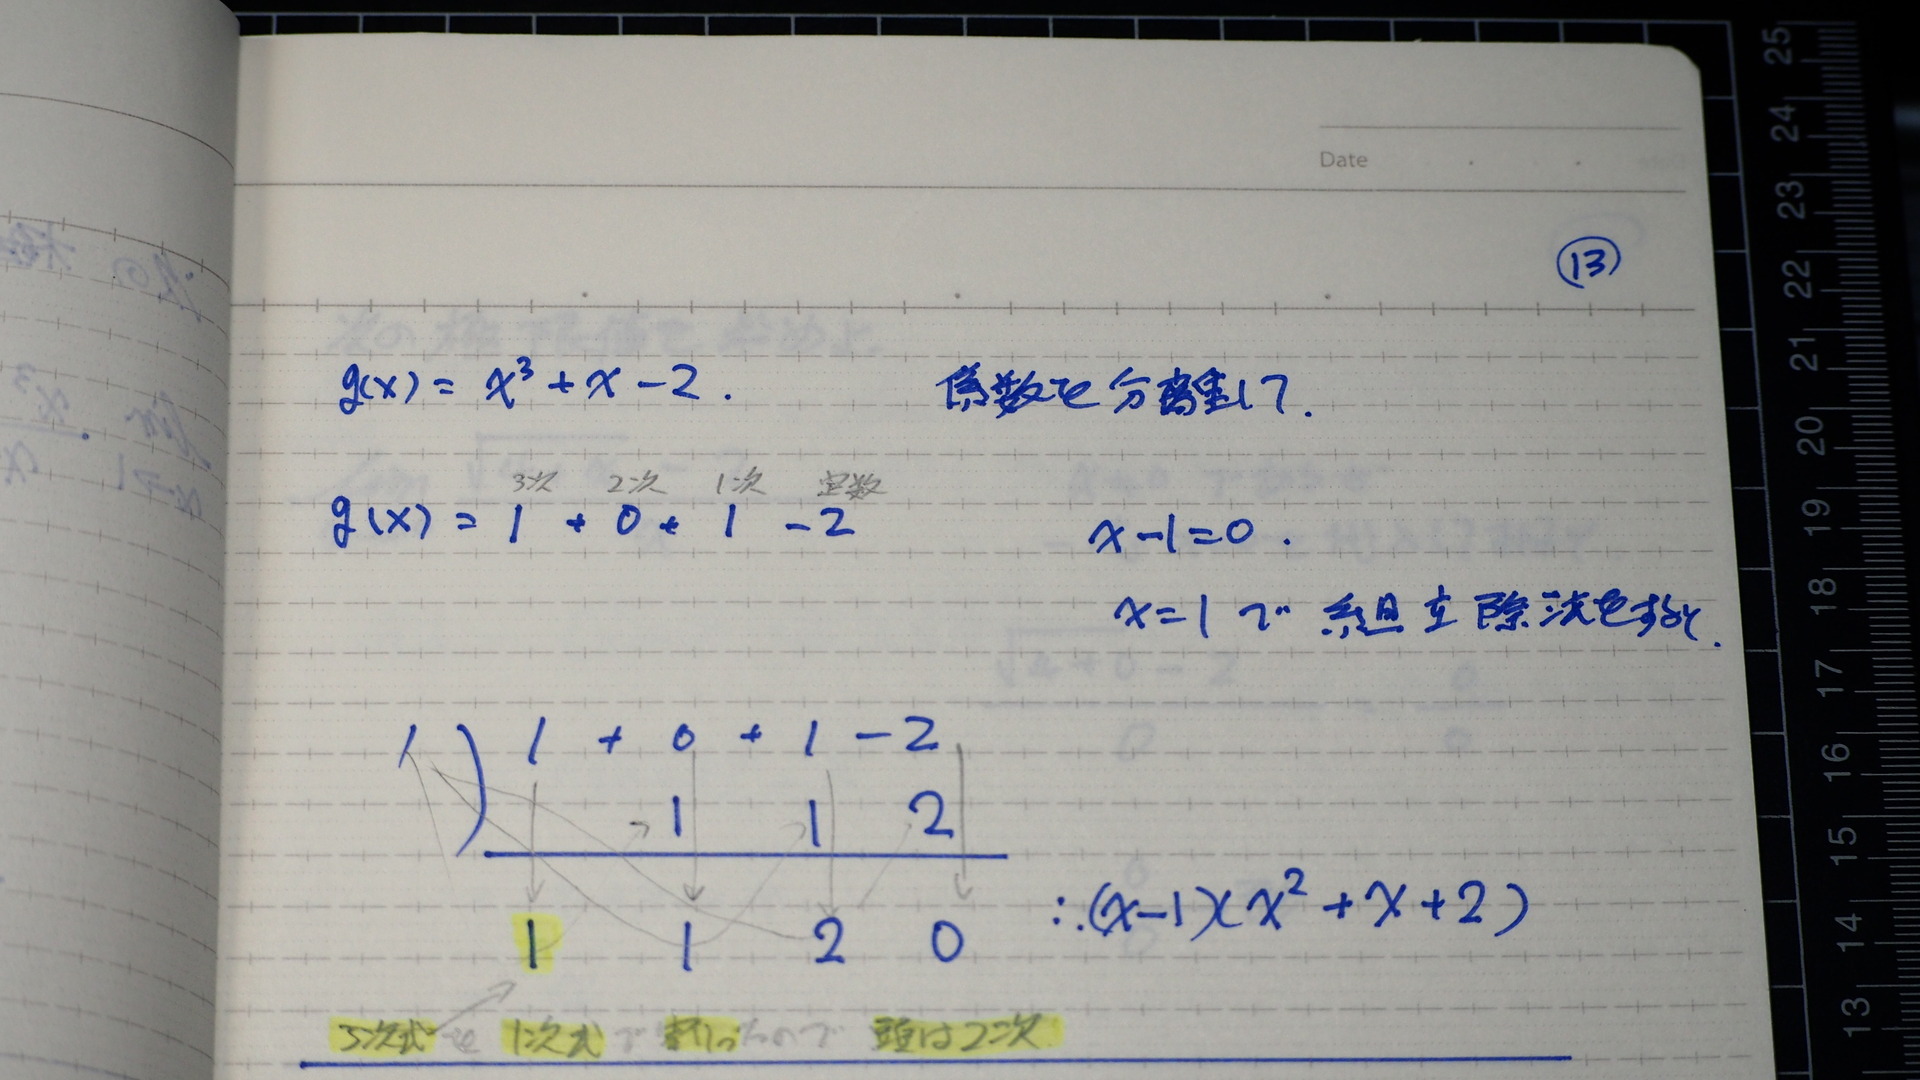 Date
⑬
g(x) = x³ + x - 2 .
係数を分離して.
3次 2次 1次 定数
g(x) = 1 + 0 + 1 - 2
x - 1 = 0 .
x = 1 で 組立除法をすると.
1 ) 1 + 0 + 1 - 2
1 1 2
1 1 2 0
∴ (x-1)(x² + x + 2)
3次式を 1次式で割ったので 頭は2次
25
24
23
22
21
20
19
18
17
16
15
14
13